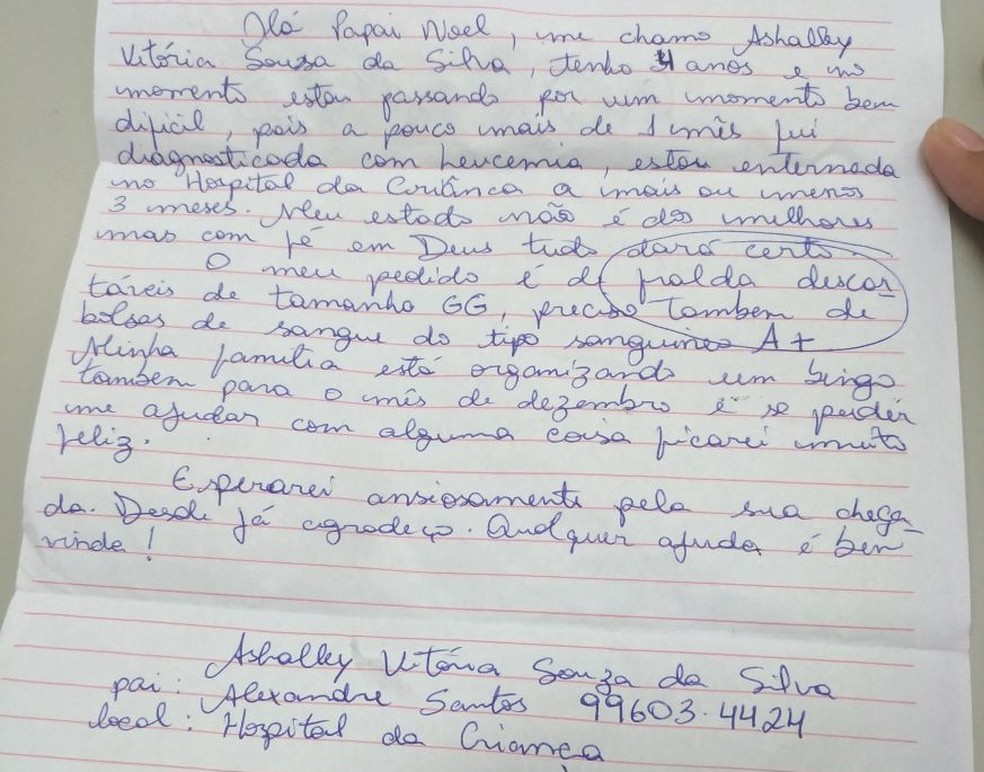 Olá Papai Noel, me chamo Ashalley
Vitória Souza da Silva, tenho 4 anos e no
momento estou passando por um momento bem
dificil, pois a pouco mais de 1 mês fui
diagnosticada com Leucemia, estou enternada
no Hospital da Criânca a mais ou menos
3 meses. Meu estado não é dos melhores
mas com fé em Deus tudo dará certo.
O meu pedido é de fralda descar
táveis de tamanho GG, preciso tambem de
bolsas de sangue do tipo sanguineo A+
Minha familia está organizando um bingo
tambem para o mês de dezembro e se puder
me ajudar com alguma coisa ficarei muito
feliz.
Esperarei ansiosamente pela sua chega_
da. Desde já agradeço. Qualquer ajuda é bem
vinda!
Ashalley Vitória Souza da Silva
pai: Alexandre Santos 99603.4424
local: Hospital da Criança